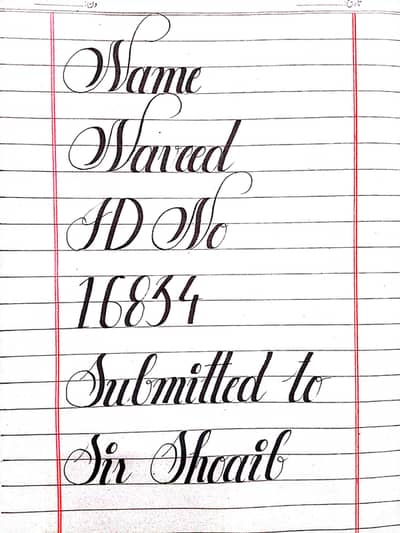 Name
Naveed
ID No
16834
Submitted to
Sir Shoaib